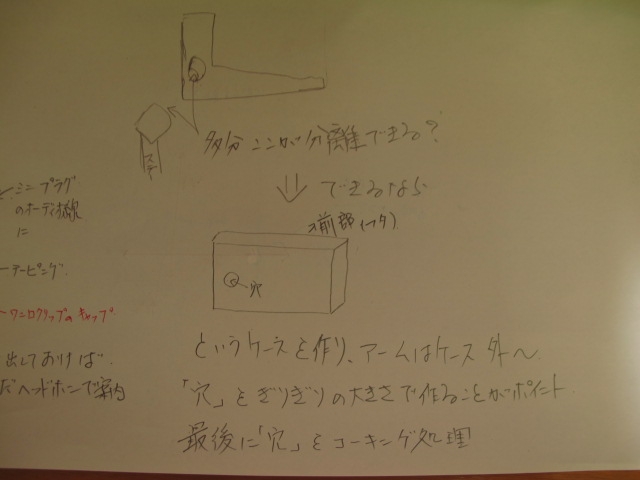 多分ここが分離できる?
ステー
できるなら
前部(フタ)
穴
ミニプラグ
のオーディオ線
に
テーピング
ワニ口クリップのキャップ
出しておけば
だヘッドホンで案内
というケースを作り、アームはケース外へ
「穴」をぎりぎりの大きさで作ることがポイント.
最後に「穴」をコーキング処理